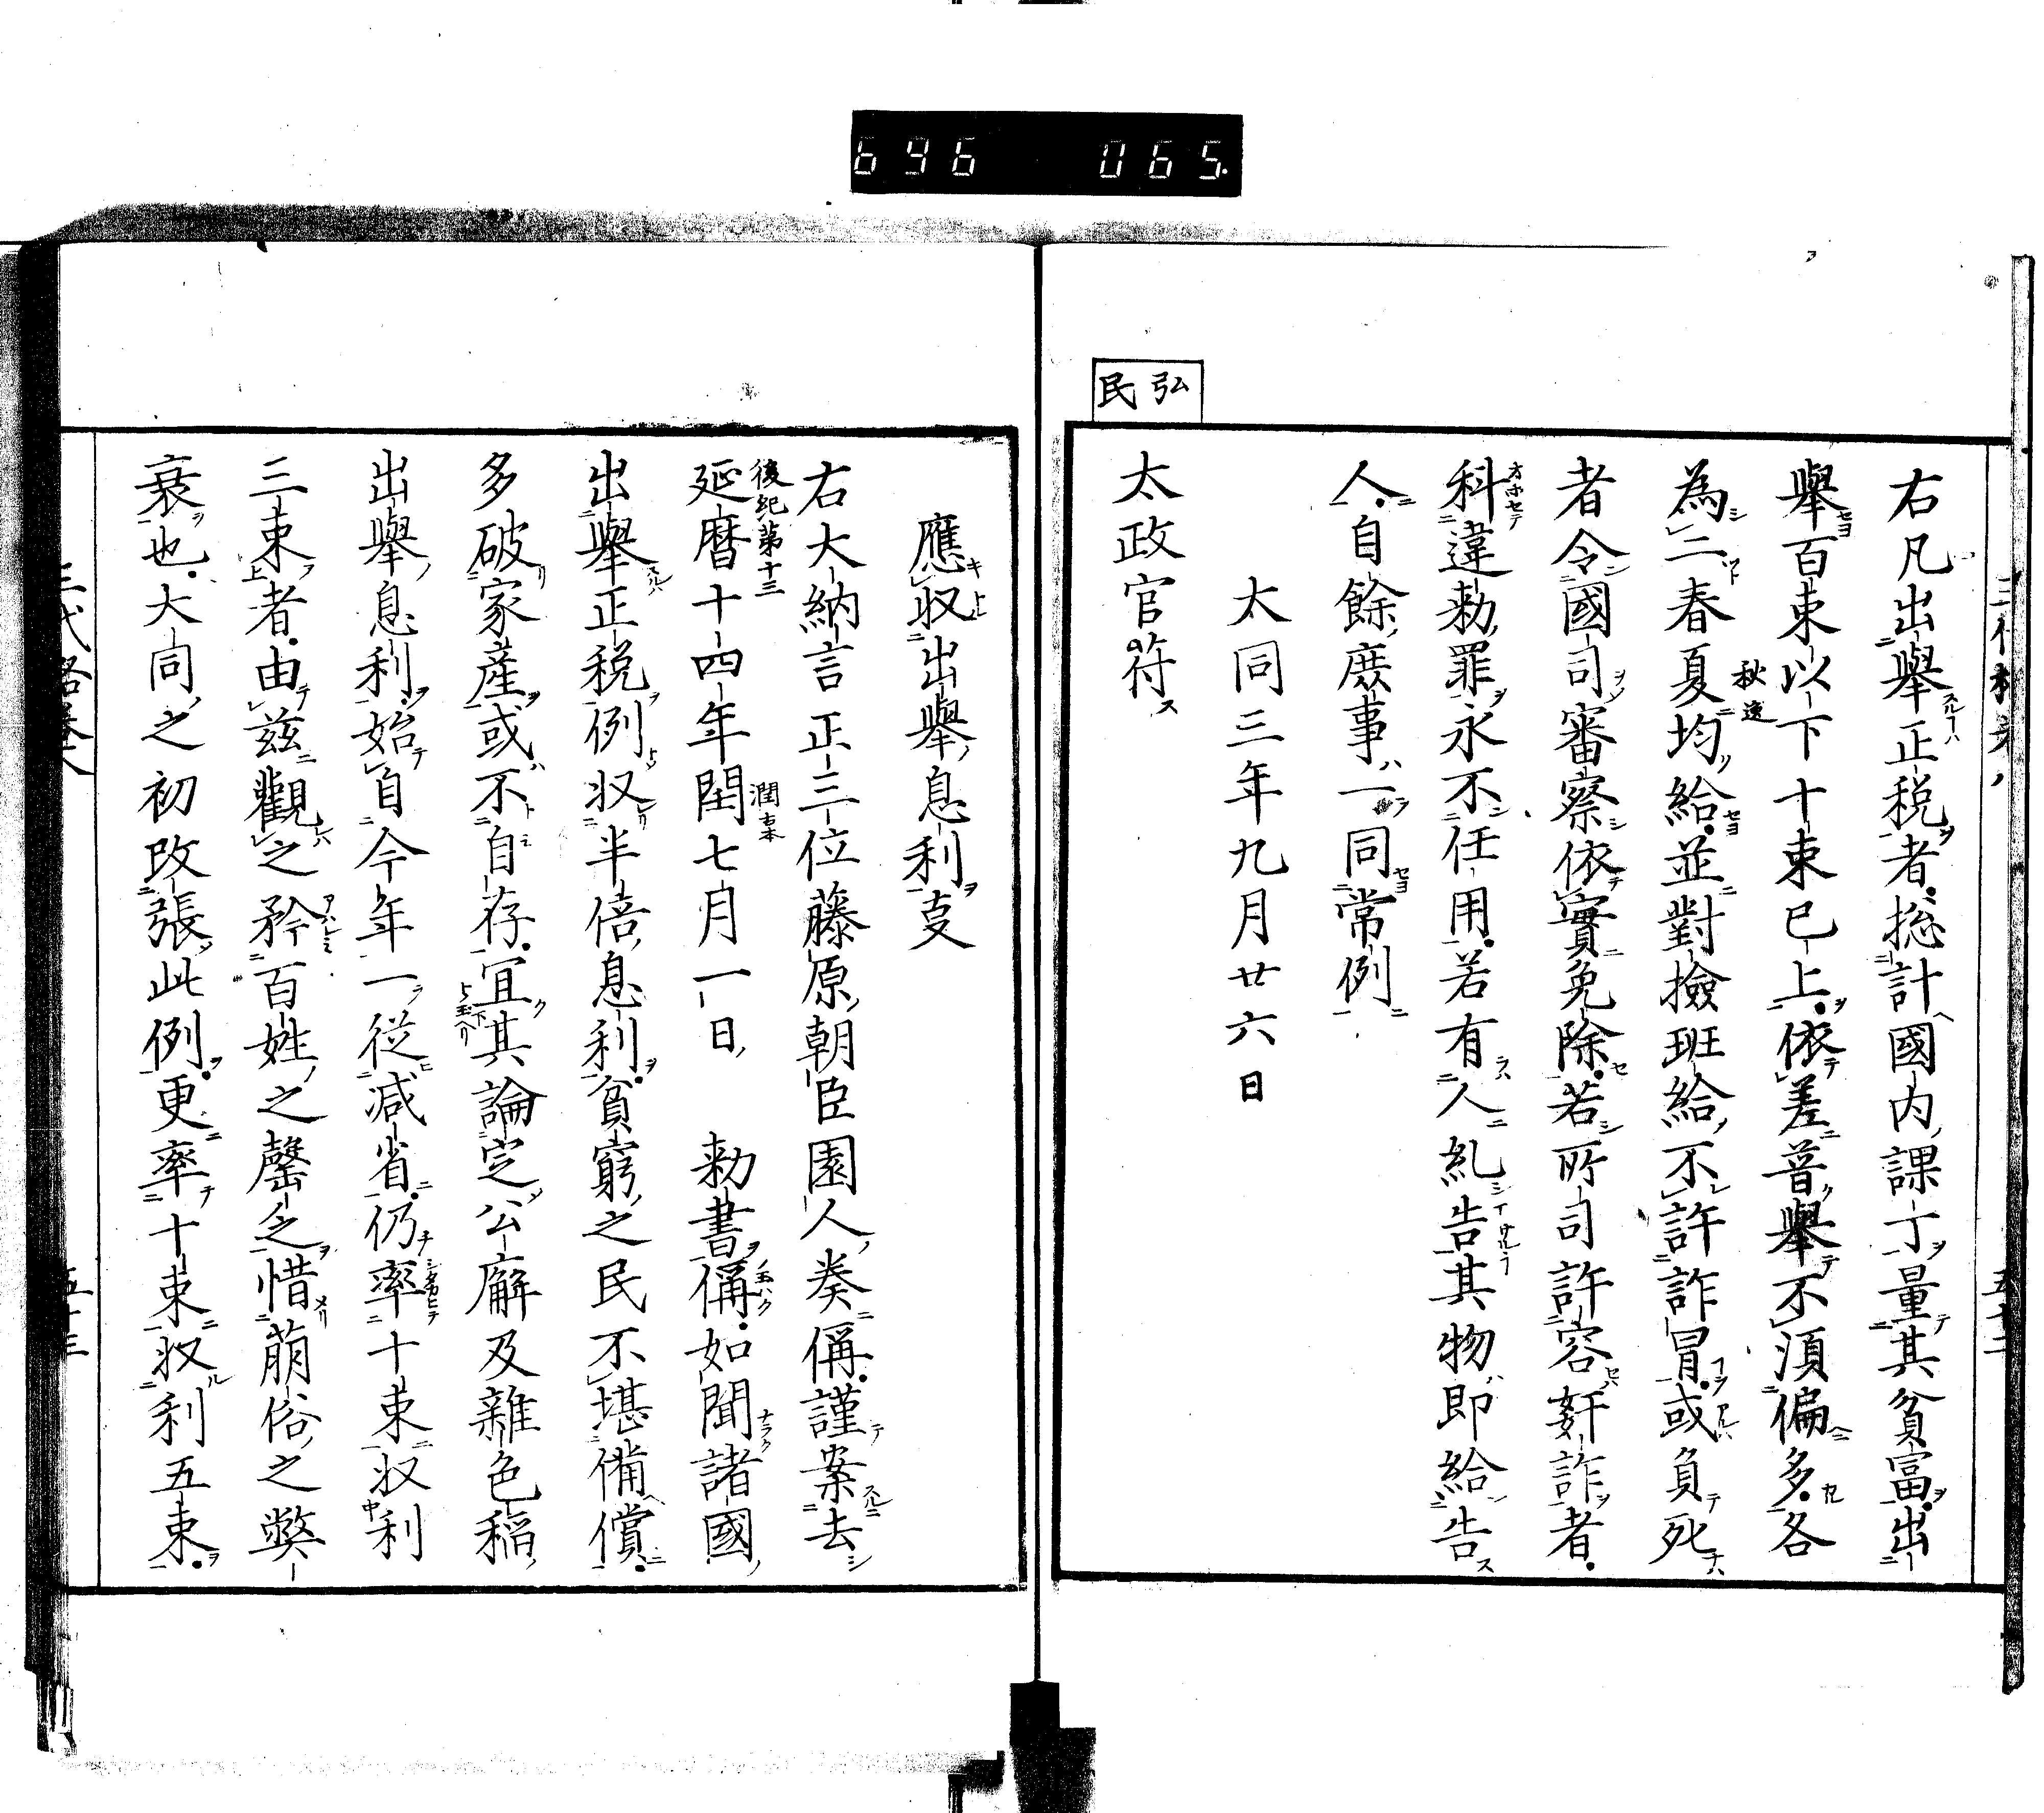 696 065.
右凡出擧正税者捴計國内課丁量其貧富出
擧百束以下十束已上依差普擧不須偏多各
為二春夏均給並對撿班給不許詐冒或負死
秋遠
者令國司審察依實免除若所司許容姧詐者
科違勅罪永不任用若有人糺告其物即給告
人自餘庶事一同常例
太同三年九月廿六日
弘民
太政官符
應収出擧息利叓
右大納言正三位藤原朝臣園人奏偁謹案去
後紀第十三
延暦十四年閏七月一日 勅書偁如聞諸國
潤古本
出擧正税例収半倍息利貧窮之民不堪備償
多破家産或不自存宜其論定公廨及雜色稲
出擧息利始自今年一従減省仍率十束収利
三束者由茲觀之矜百姓之罄乏惜萠俗之弊
衰也大同之初改張此例更率十束収利五束